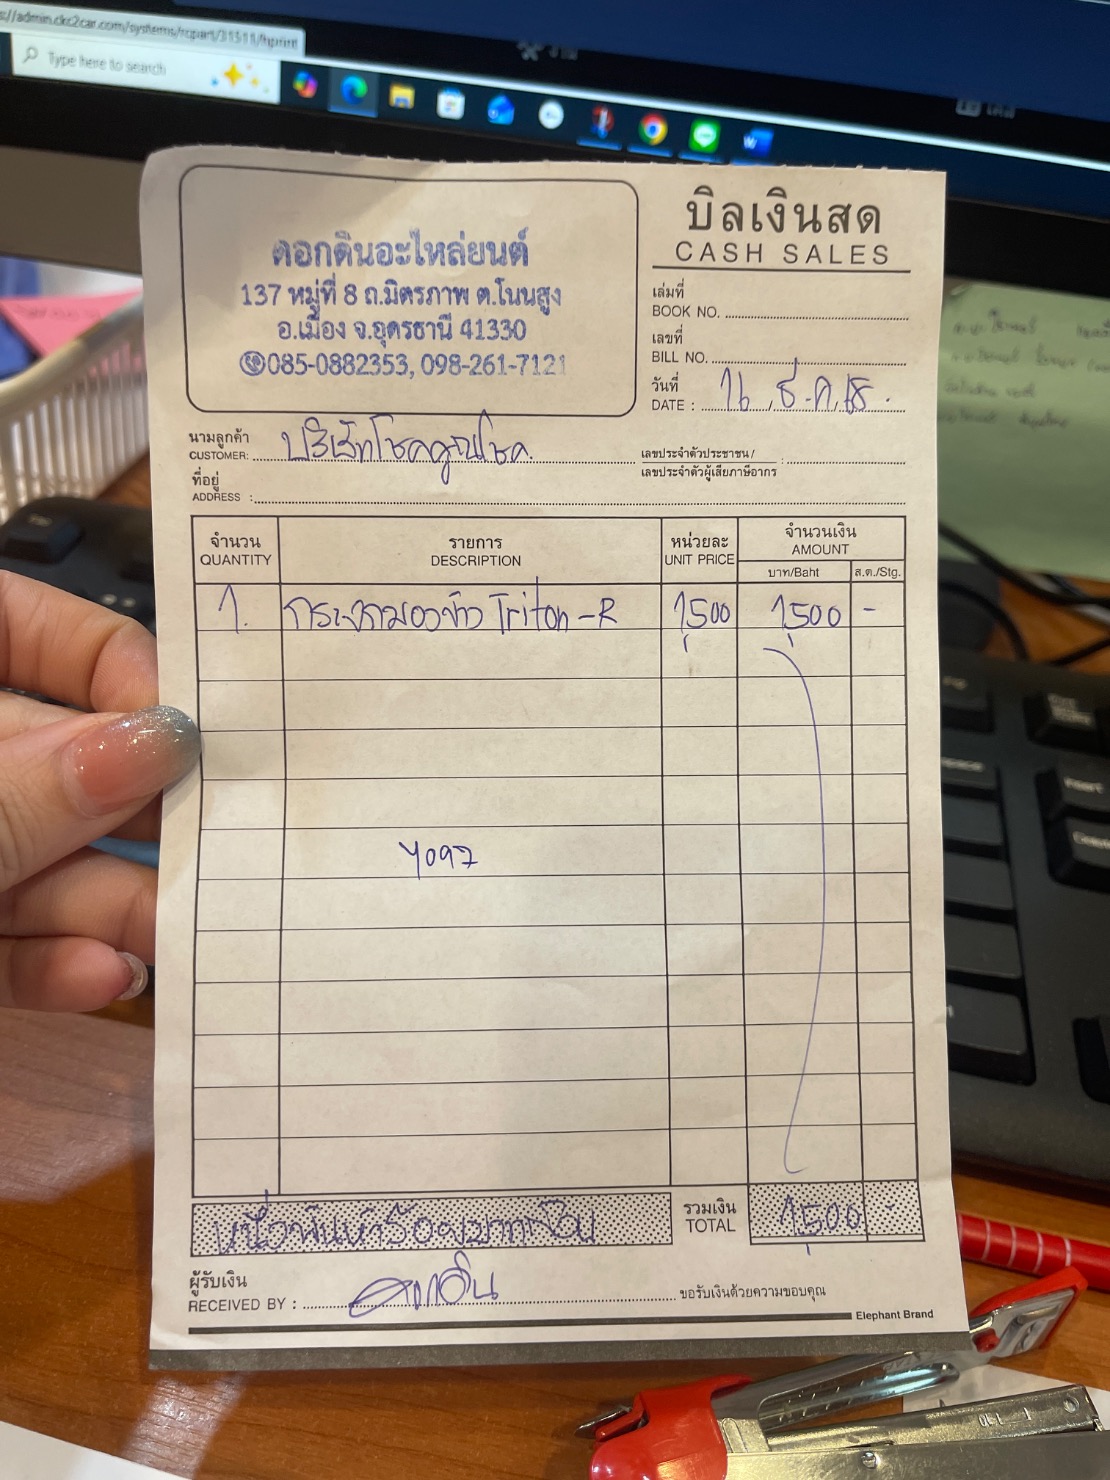 ://admin.ckc2car.com/systems/rcpart/31511/hprint
Type here to search
ดอกดินอะไหล่ยนต์
137 หมู่ที่ 8 ถ.มิตรภาพ ต.โนนสูง
อ.เมือง จ.อุดรธานี 41330
085-0882353, 098-261-7121
บิลเงินสด
CASH SALES
เล่มที่
BOOK NO.
เลขที่
BILL NO.
วันที่
DATE : 16 ธ.ค. 68.
นามลูกค้า
CUSTOMER: บริษัทโชคคูณโชค
เลขประจำตัวประชาชน/
เลขประจำตัวผู้เสียภาษีอากร :
ที่อยู่
ADDRESS :
จำนวน รายการ หน่วยละ จำนวนเงิน
QUANTITY DESCRIPTION UNIT PRICE AMOUNT
บาท/Baht ส.ต./Stg.
1. กระจกมองข้าง Triton-R 1,500 1,500 -
4097
หนึ่งพันห้าร้อยบาทถ้วน
รวมเงิน
TOTAL 1,500 -
ผู้รับเงิน
RECEIVED BY : ดอกดิน
ขอรับเงินด้วยความขอบคุณ
Elephant Brand